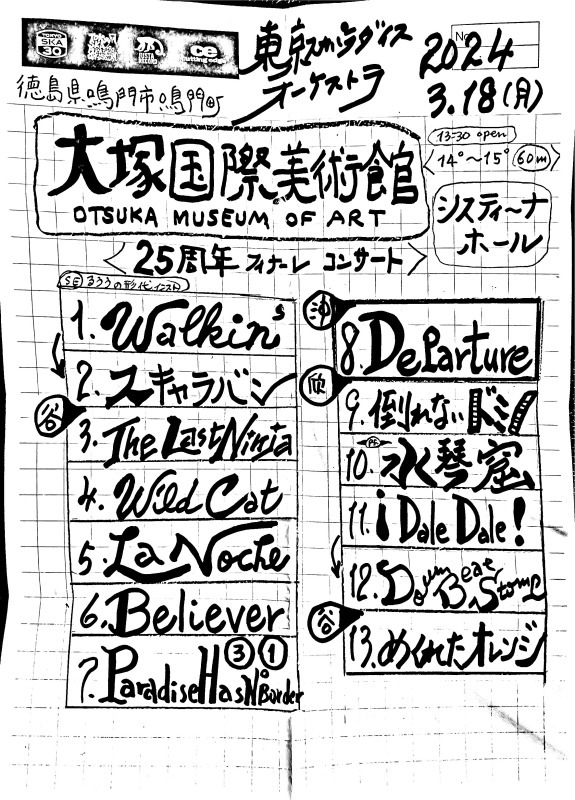 TOKYO SKA 30
cutting edge
東京スカパラダイス
オーケストラ
No.
2024
3.18(月)
徳島県鳴門市鳴門町
13:30 open
14°〜15° 60m
大塚国際美術館
OTSUKA MUSEUM OF ART
システィーナ
ホール
〈25周年 フィナーレ コンサート〉
SE るろうの形代インスト
1. Walkin's
2. スキャラバン
谷
3. The Last Ninja
4. Wild Cat
5. La Noche
6. Believer
3 1
7. Paradise Has No Border
沖
8. Departure
欣
9. 倒れないドミノ
PF
10. 水琴窟
11. ¡Dale Dale!
12. Down Beat Stomp
谷
13. めくれたオレンジ